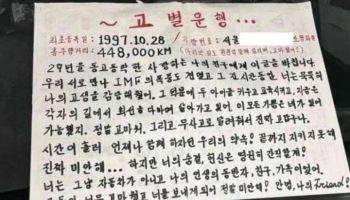 ~ 고별운행 …
최초등록일: 1997.10.28
총주행거리: 448,000KM
차량번호: 서울
29년을 동고동락한 사랑하는 나의 친구에게 이 글을 바칩니다.
우리 서로 만나 IMF의 폭풍도 견뎠고 그 긴 시간동안 너는 묵묵히
나의 고생을 감당해 줬어, 그 덕분에 두 아이를 키우고 교육시키고, 지금은
각자의 길에서 최선을 다하며 살아가고 있어. 이 모든 기쁨은 네가 있어
가능했지. 정말 고마워, 그리고 무사고로 달려줘서 진짜 고맙구나.
시간이 흘러 언제나 함께 하자던 우리의 약속? 끝까지 지키지 못해
진짜 미안해… 하지만 너의 숨결, 헌신은 영원히 간직할게?
너는 그냥 자동차가 아니고 나의 인생의 동반자, 친구, 가족이었어.
너를 보내게 되어 정말 미안해! 안녕, 나의 Friend?